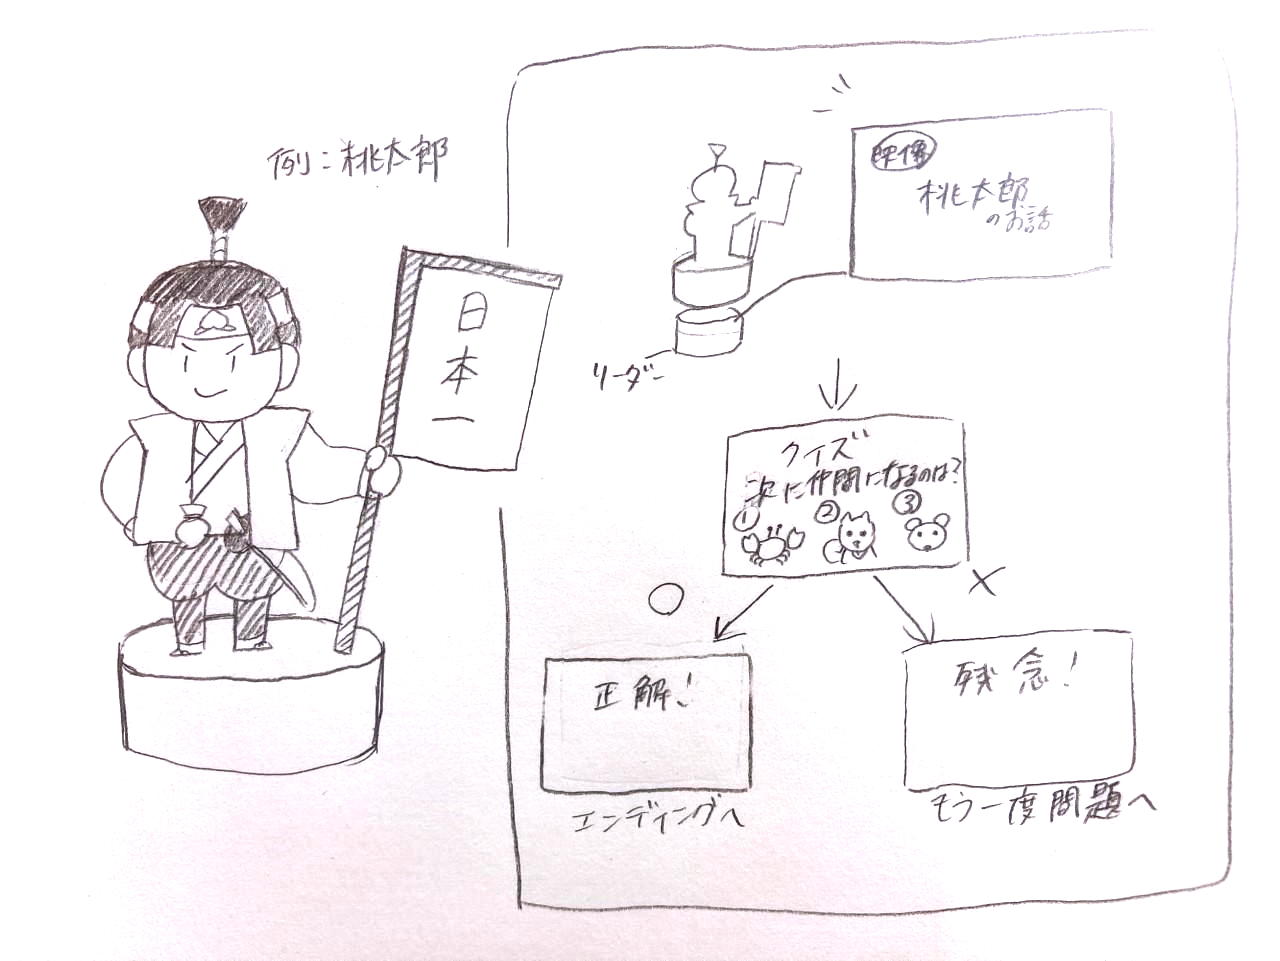 例：桃太郎
日本一
映像
桃太郎
のお話
リーダー
クイズ
次に仲間になるのは？
① ② ③
○
×
正解！
残念！
エンディングへ
もう一度問題へ